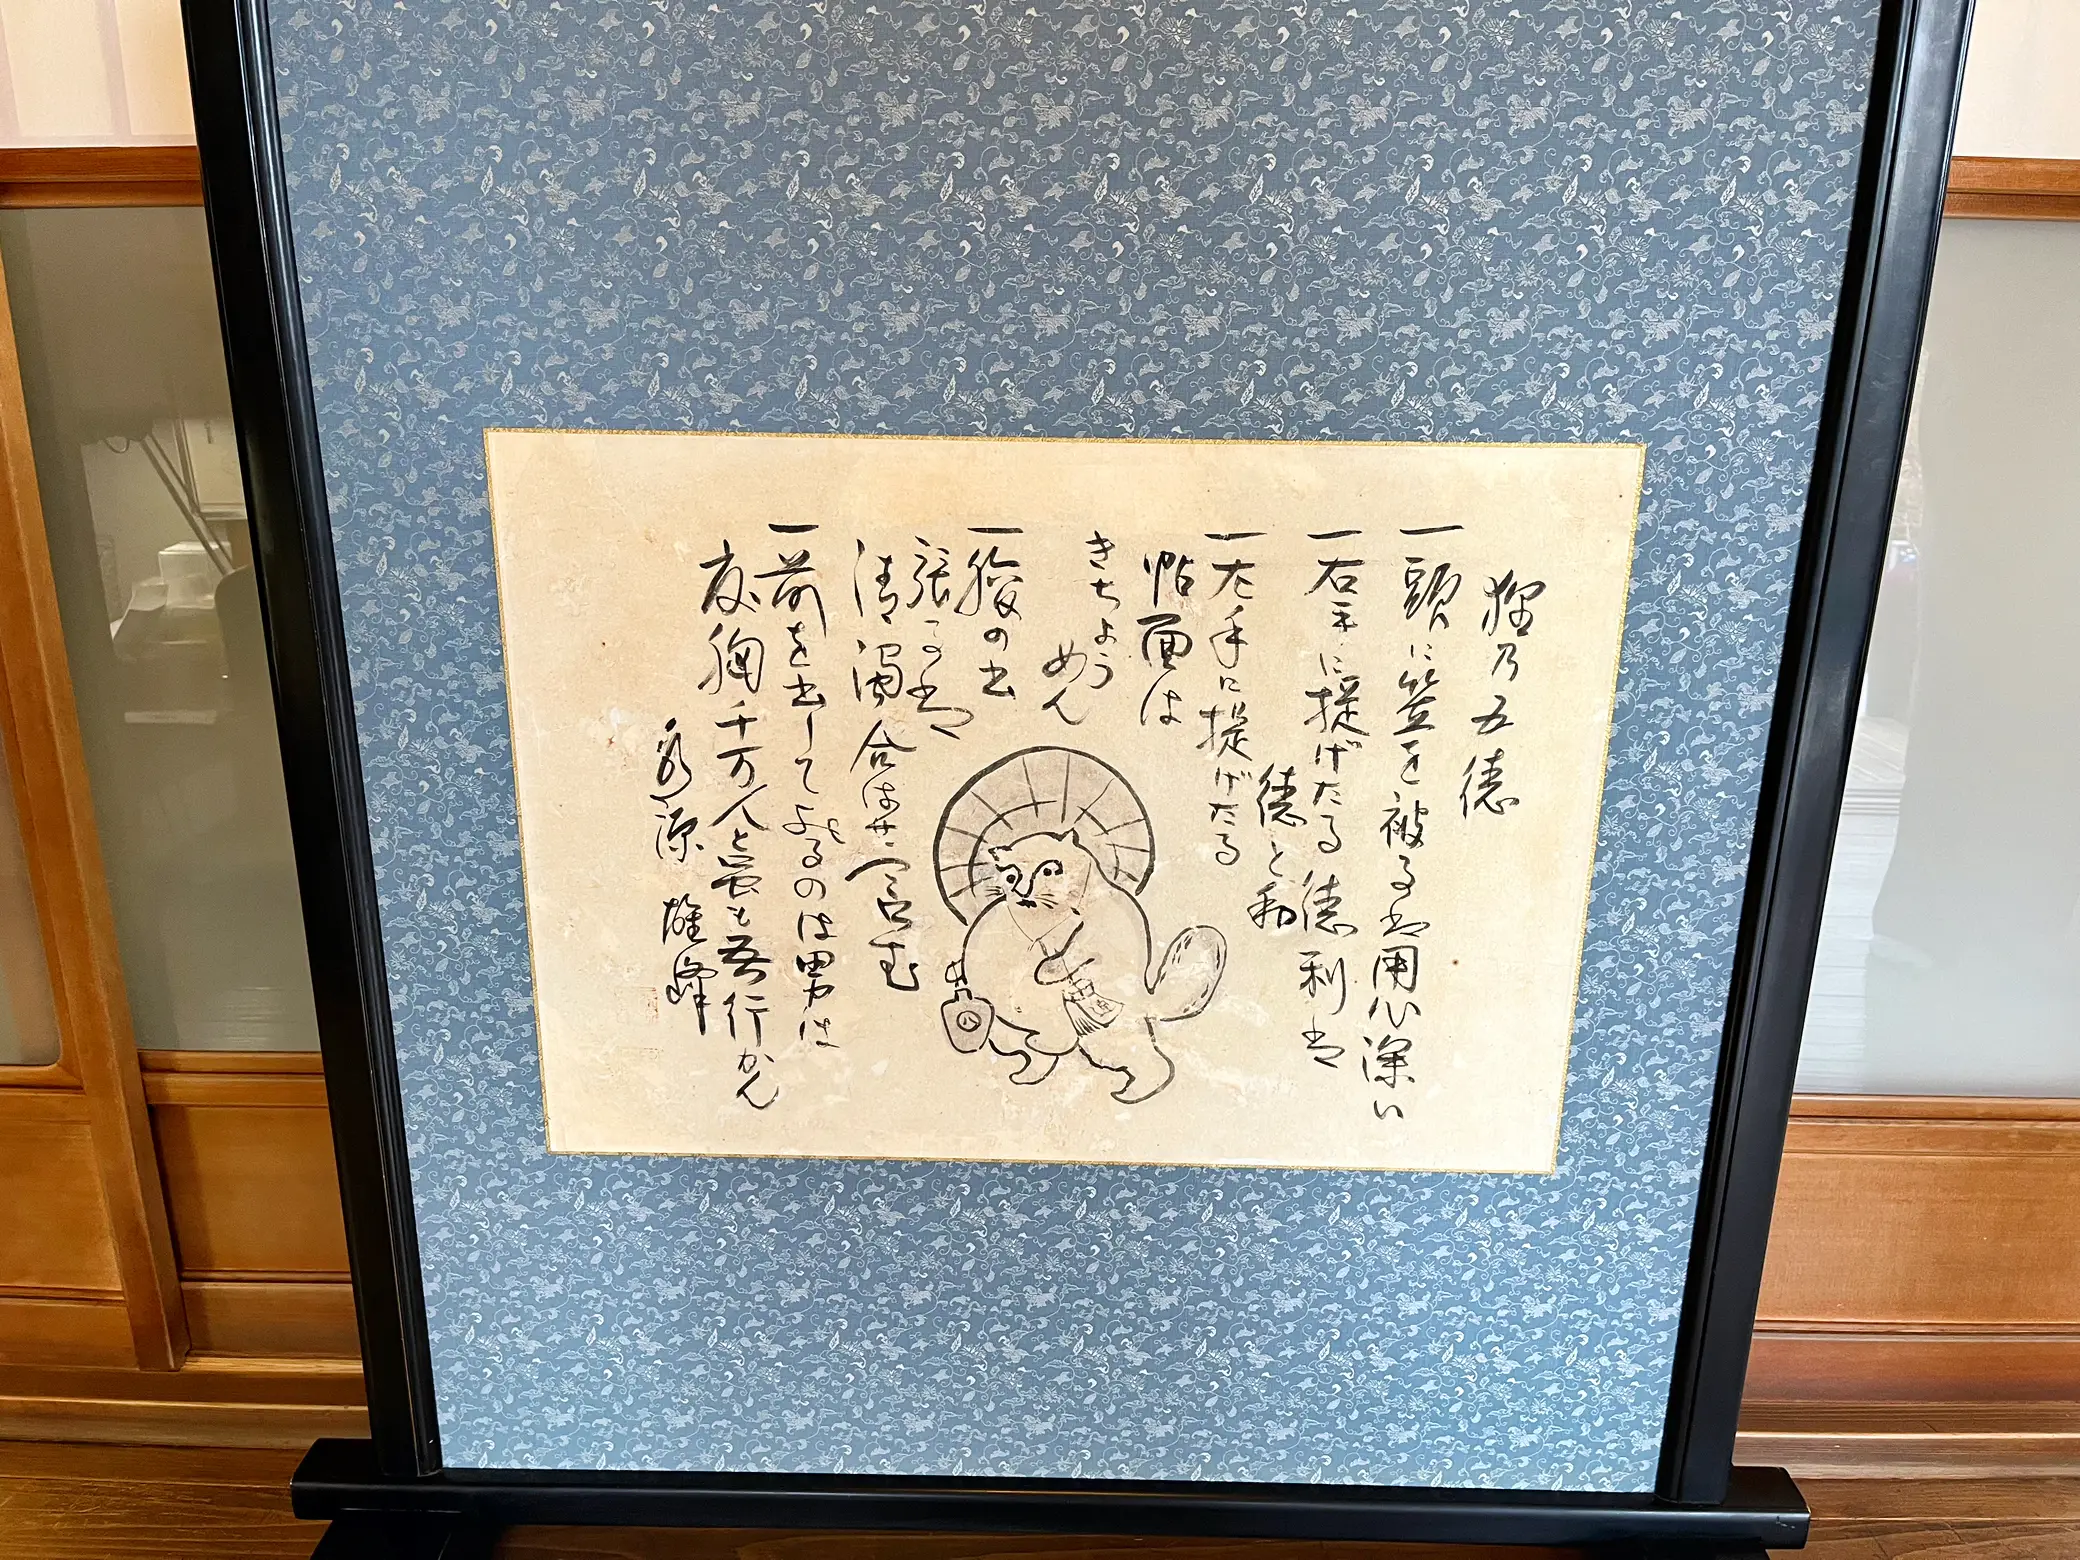 狸乃五徳
一頭に笠を被るは用心深い
一右手に提げたる徳利は
徳と利
一左手に提げたる
帖面は
きちょう
めん
一腹の出
張るのは
清濁合はせ
一前を出してよるのは男は
度胸千万人と雖も吾行かん
雄峰